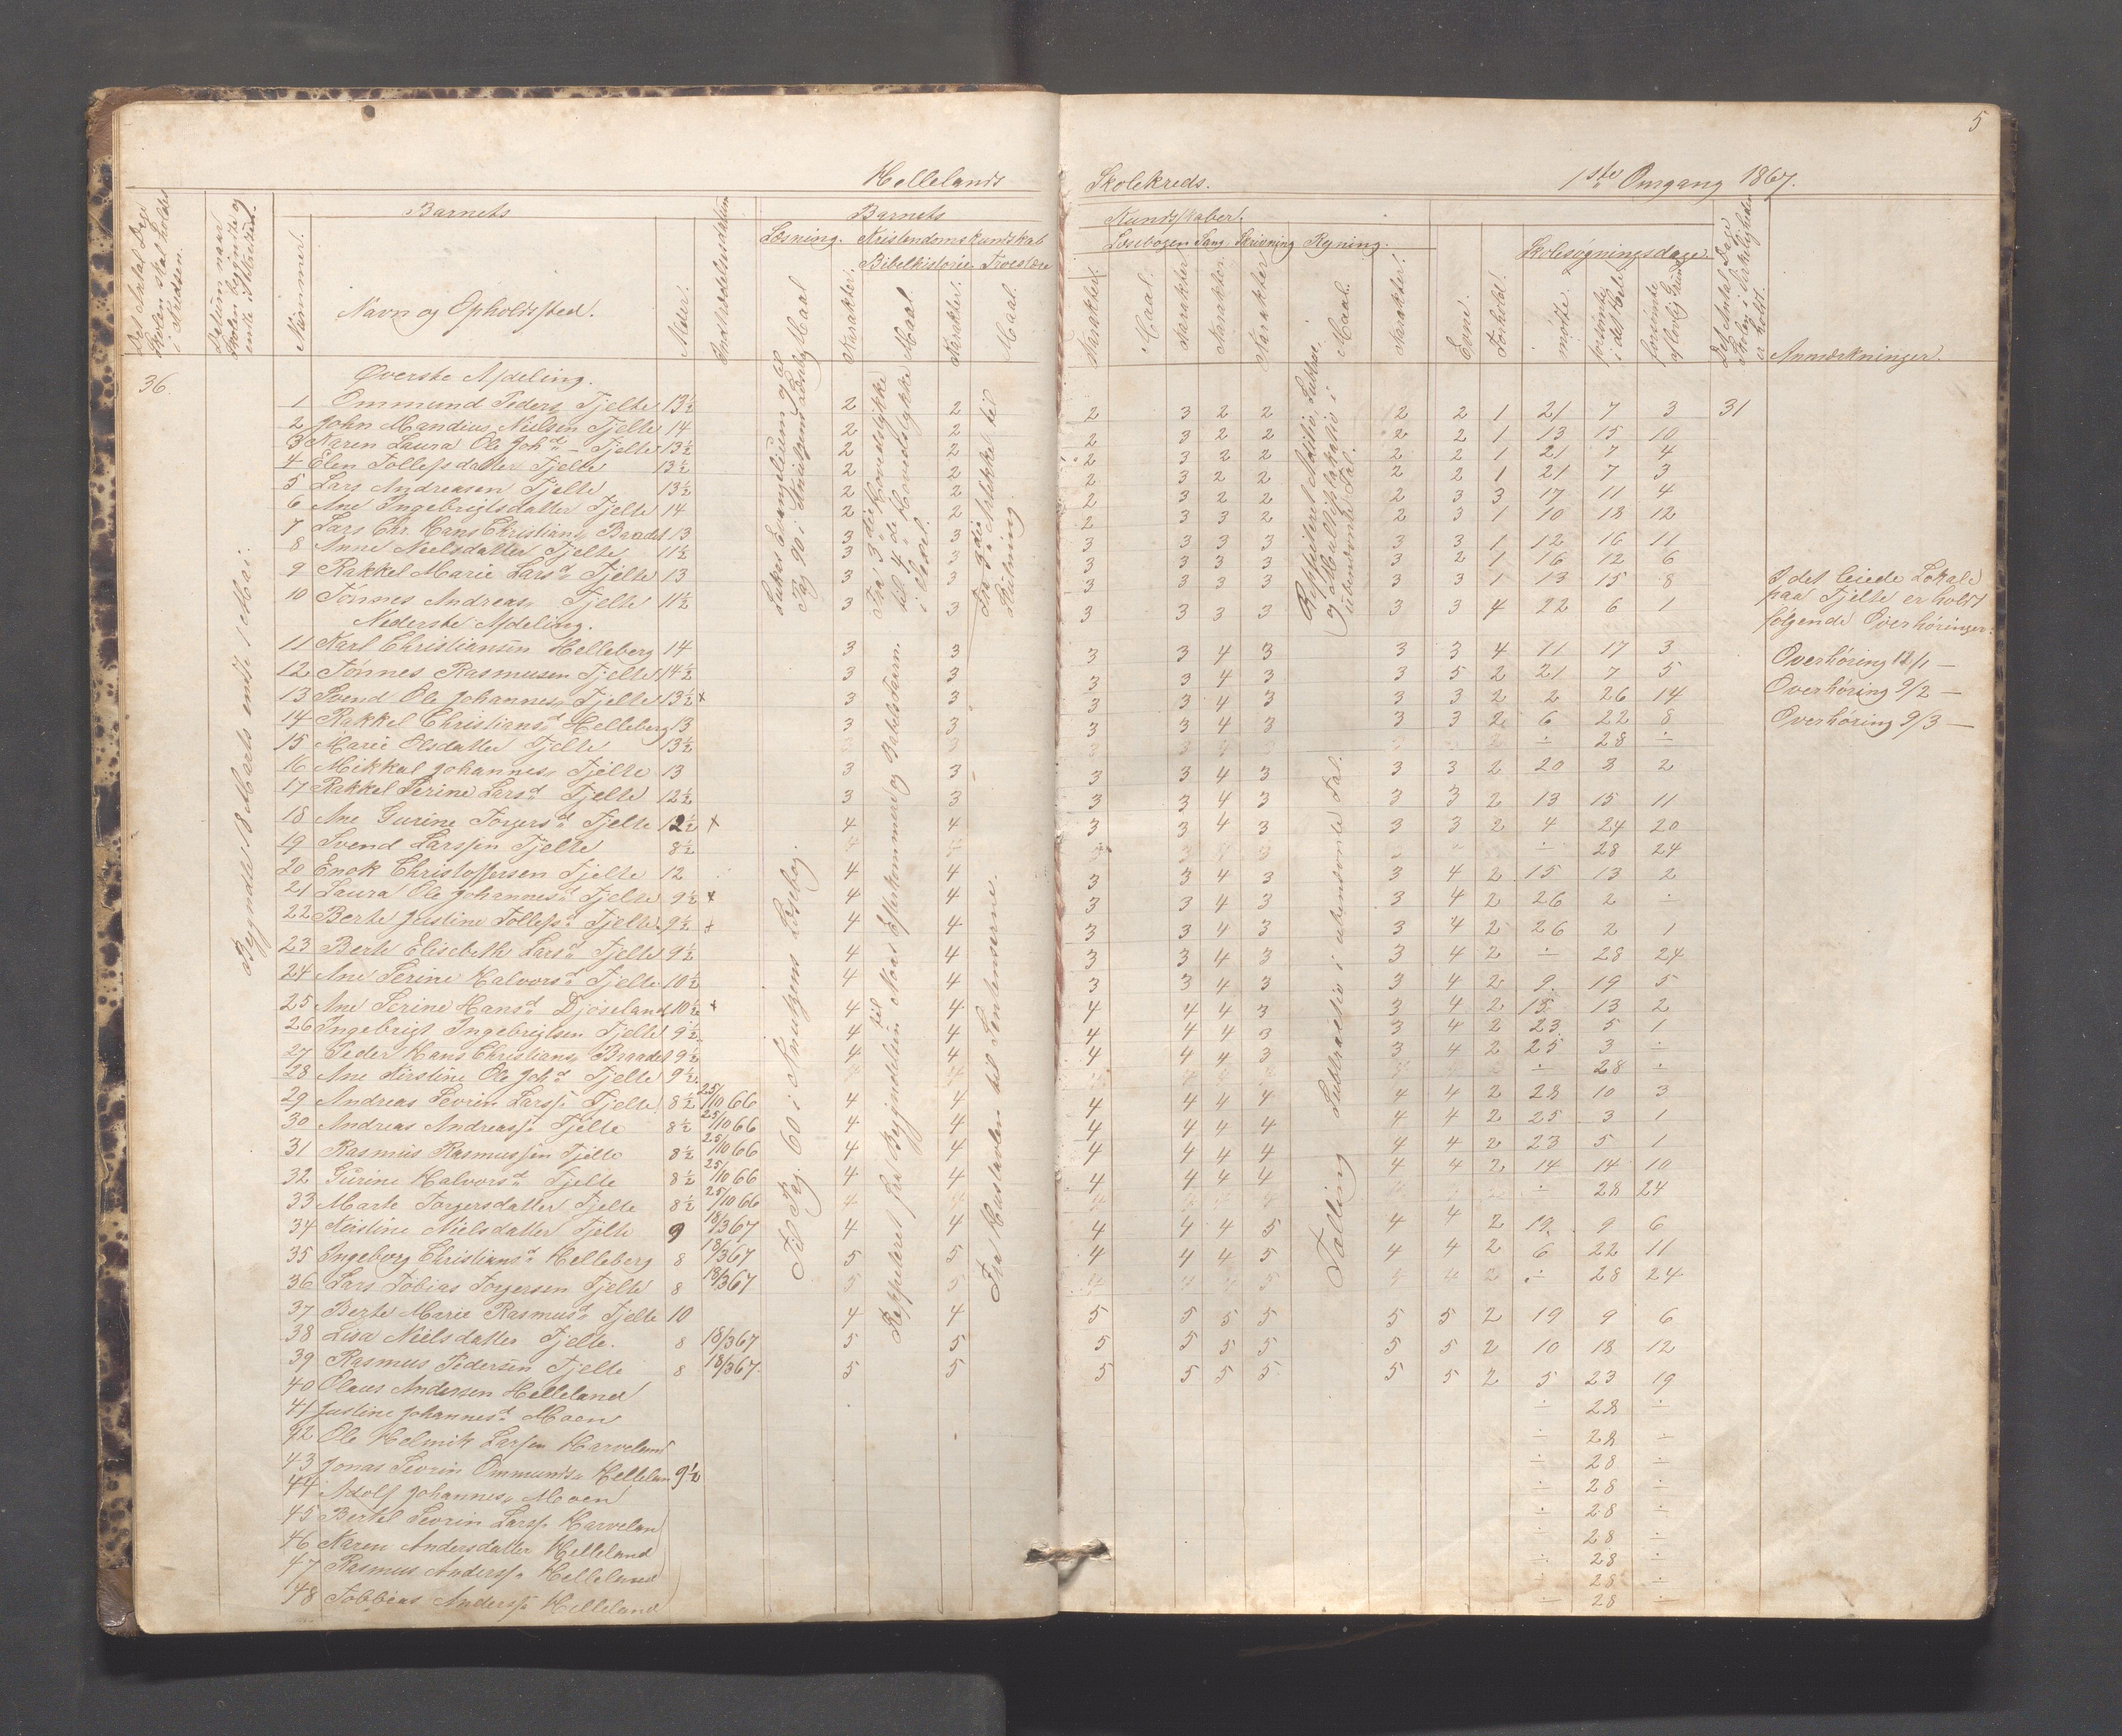 5
Hellelands Skolekreds. 1ste Omgang 1867.
Det Antal Dage Skolen skal holdes i Kredsen.
Datum naar Skolen begyndte og endte i Kredsen.
Nummer.
Barnets
Navn og Opholdssted.
Alder.
Indtrædelsesdatum
Barnets Kundskaber.
Læsning. Kristendomskundskab Læsebogen Sang. Skrivning Regning.
Bibelhistorie Troeslære
Maal Karakter. Maal. Karakter. Maal. Karakter. Maal. Karakter Karakter. Karakter Maal. Karakter.
Evne. Forhold.
Skolesøgningsdage.
mødte. forsømte i det Hele forsømte af lovlig Grund
Det Antal Dage Skolen i Virkeligheden er holdt.
Anmærkninger.
36.
Begyndte 18 Marts endte 1 Mai.
Øverste Afdeling.
1 Ommund Peders. Tjelte 13½ 2 2 2 3 2 2 2 2 1 21 7 3 31
2 John Mandius Nielsen Tjelte 14 2 2 2 3 2 2 2 2 1 13 15 10
3 Karen Laura Ole Joh.d. Tjelte 13½ 2 2 2 3 2 2 2 2 1 21 7 4
4 Elen Tollefsdatter Tjelte 13½ 2 2 2 3 2 2 2 2 1 21 7 3
5 Lars Andreasen Tjelte 13½ 2 2 2 3 2 2 2 3 3 17 11 4
6 Ane Ingebrigtsdatter Tjelte 14 2 2 2 3 3 2 2 3 1 10 18 12
7 Lars Chr. Hans Christians. Braadet 13 3 3 3 3 3 3 3 3 1 12 16 11
8 Anne Neelsdatter Tjelte 11½ 3 3 3 3 3 3 3 2 1 16 12 6
9 Rakkel Marie Lars d. Tjelte 13 3 3 3 3 3 3 3 3 1 13 15 8
10 Tønnes Andreas. Tjelte 11½ 3 3 3 3 3 3 3 3 4 22 6 1
Nederste Afdeling.
11 Karl Christiansen Helleberg 14 3 3 3 3 4 3 3 3 4 11 17 3
12 Tønnes Rasmusen Tjelte 14½ 3 3 3 3 4 3 3 5 2 21 7 5
13 Svend Ole Johannes. Tjelte 13½ x 3 3 3 3 4 3 3 3 2 2 26 14
14 Rakkel Christians d. Helleberg 13 3 3 3 3 4 3 3 3 2 6 22 8
15 Marie Olsdatter Tjelte 13½ ÷ 28 ÷
16 Mikkal Johannes. Tjelte 13 3 3 3 3 4 3 3 3 2 20 3 2
17 Rakkel Serine Lars d. Tjelte 12½ 3 3 3 3 4 3 3 3 2 13 15 11
18 Ane Gurine Torgers d. Tjelte 12½ x 4 4 3 3 4 3 3 3 2 4 24 20
19 Svend Larssen Tjelte 8½ ÷ 28 24
20 Enok Christoffersen Tjelte 12 4 4 3 3 4 3 3 4 2 15 13 2
21 Laura Ole Johannes d. Tjelte 9½ x 4 4 3 3 4 3 3 4 2 26 2 ÷
22 Berte Justine Tollefs d. Tjelte 9½ x 4 4 3 3 4 3 3 4 2 26 2 1
23 Berte Elisebeth Lars d. Tjelte 9½ 4 4 3 3 4 3 3 4 2 ÷ 28 24
24 Ane Serine Halvors d. Tjelte 10½ 4 4 3 3 4 3 3 4 2 9 19 5
25 Ane Serine Hans d. Djøseland 10½ x 4 4 4 4 4 3 3 4 2 15 13 2
26 Ingebrigt Ingebrigtsen Tjelte 9½ 4 4 4 4 4 3 3 4 2 23 5 1
27 Peder Hans Christians. Braadet 9½ 4 4 4 4 4 3 3 4 2 25 3 ÷
28 Ane Kirstine Ole Joh d. Tjelte 9½ ÷ 28 ÷
29 Andreas Sevrin Larss. Tjelte 8½ 25/10 66 4 4 4 4 4 4 4 4 2 28 10 3
30 Andreas Andreass. Tjelte 8½ 25/10 66 4 4 4 4 4 4 4 4 2 25 3 1
31 Rasmus Rasmussen Tjelte 8½ 25/10 66 4 4 4 4 4 4 4 4 2 23 5 1
32 Gurine Halvors d. Tjelte 8½ 25/10 66 4 4 4 4 4 4 4 4 2 14 14 10
33 Marte Torgersdatter Tjelte 8½ 25/10 66 4 4 ÷ 28 24
34 Kristine Nielsdatter Tjelte 9 18/3 67 4 4 4 4 4 5 4 4 2 19 9 6
35 Ingeborg Christians d. Helleberg 8 18/3 67 5 5 4 4 4 5 4 4 2 6 22 11
36 Lars Tobias Torgersen Tjelte 8 18/3 67 5 5 ÷ 28 24
37 Berte Marie Rasmus d. Tjelte 10 4 4 5 5 5 5 5 5 2 19 9 6
38 Lisa Nielsdatter Tjelte. 8 18/3 67 5 5 5 5 5 5 5 5 2 10 18 12
39 Rasmus Pedersen Tjelte 8 18/3 67. 5 5 5 5 5 5 5 5 2 5 23 19
40 Olaus Andersen Helleland ÷ 28 ÷
41 Justine Johannes d. Moen ÷ 28 ÷
42 Ole Helmik Larsen Harveland ÷ 28 ÷
43 Jonas Sevrin Ommunds. Hellelan 9½ ÷ 28 ÷
44 Adolf Johannes. Moen ÷ 28 ÷
45 Bertel Sevrin Larss. Harvelan ÷ 28 ÷
46 Karen Andersdatter Helleland ÷ 28 ÷
47 Rasmus Anderss. Helleland ÷ 28 ÷
48 Tobbias Anderss. Helleland ÷ 28 ÷
Lukas Evangelium og til Pag 90 i
Fra 3die Hovedstykke til 4de Hovedstykke i
Fra 3die Artikkel til Slutning
Reppeteret Additio, Subtrac. og Multiplikatio i ubenævnte Tal.
Til Pag. 60 i Knutzens Læsebog.
Reppeteret fra Begyndelsen til Noas Efterkommere og Babelstaarn.
Fra Hustavlen til Sentenserne.
Tælling Subtractio i ubenævnte Tal.
I det leiede Lokale
paa Tjelte er holdt
følgende Overhøringer:
Overhøring 12/1 —
Overhøring 9/2 —
Overhøring 9/3 —